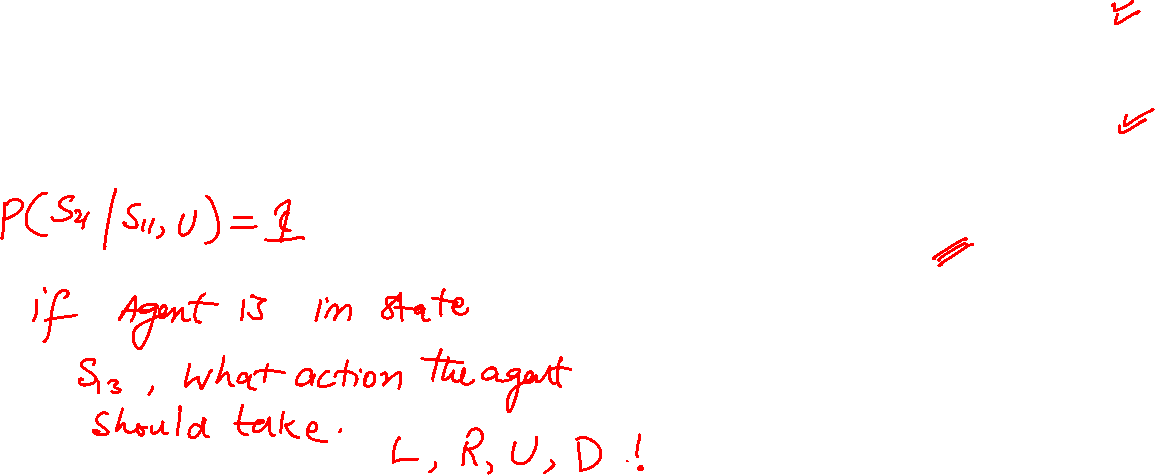 P(S21/S11, U) = 1
if Agent is in state
S13, what action the agent
should take.
L, R, U, D !